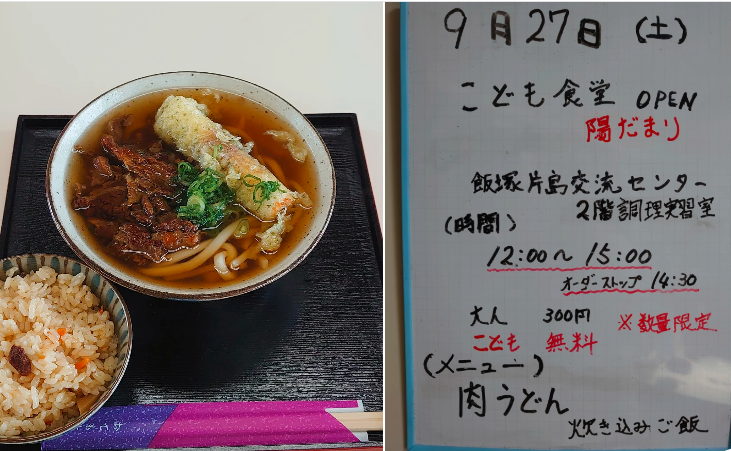 9月27日(土)
こども食堂 OPEN
陽だまり
飯塚片島交流センター
2階調理実習室
(時間)
12:00〜15:00
オーダーストップ 14:30
大人 300円
※数量限定
こども 無料
(メニュー)
肉うどん
炊き込みご飯